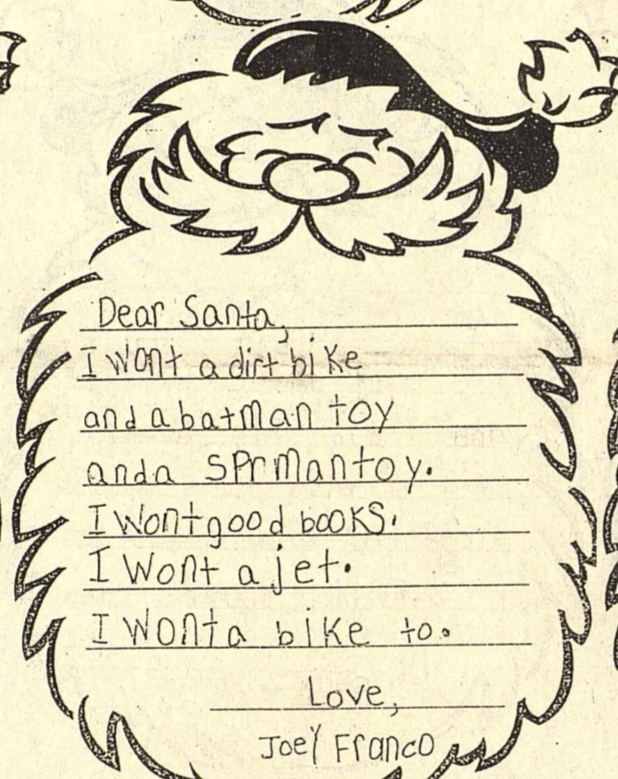 Dear Santa,
I wont a dirt bike
and a batman toy
and a sprman toy.
I wont good books.
I wont a jet.
I wont a bike to.
Love,
Joey Franco